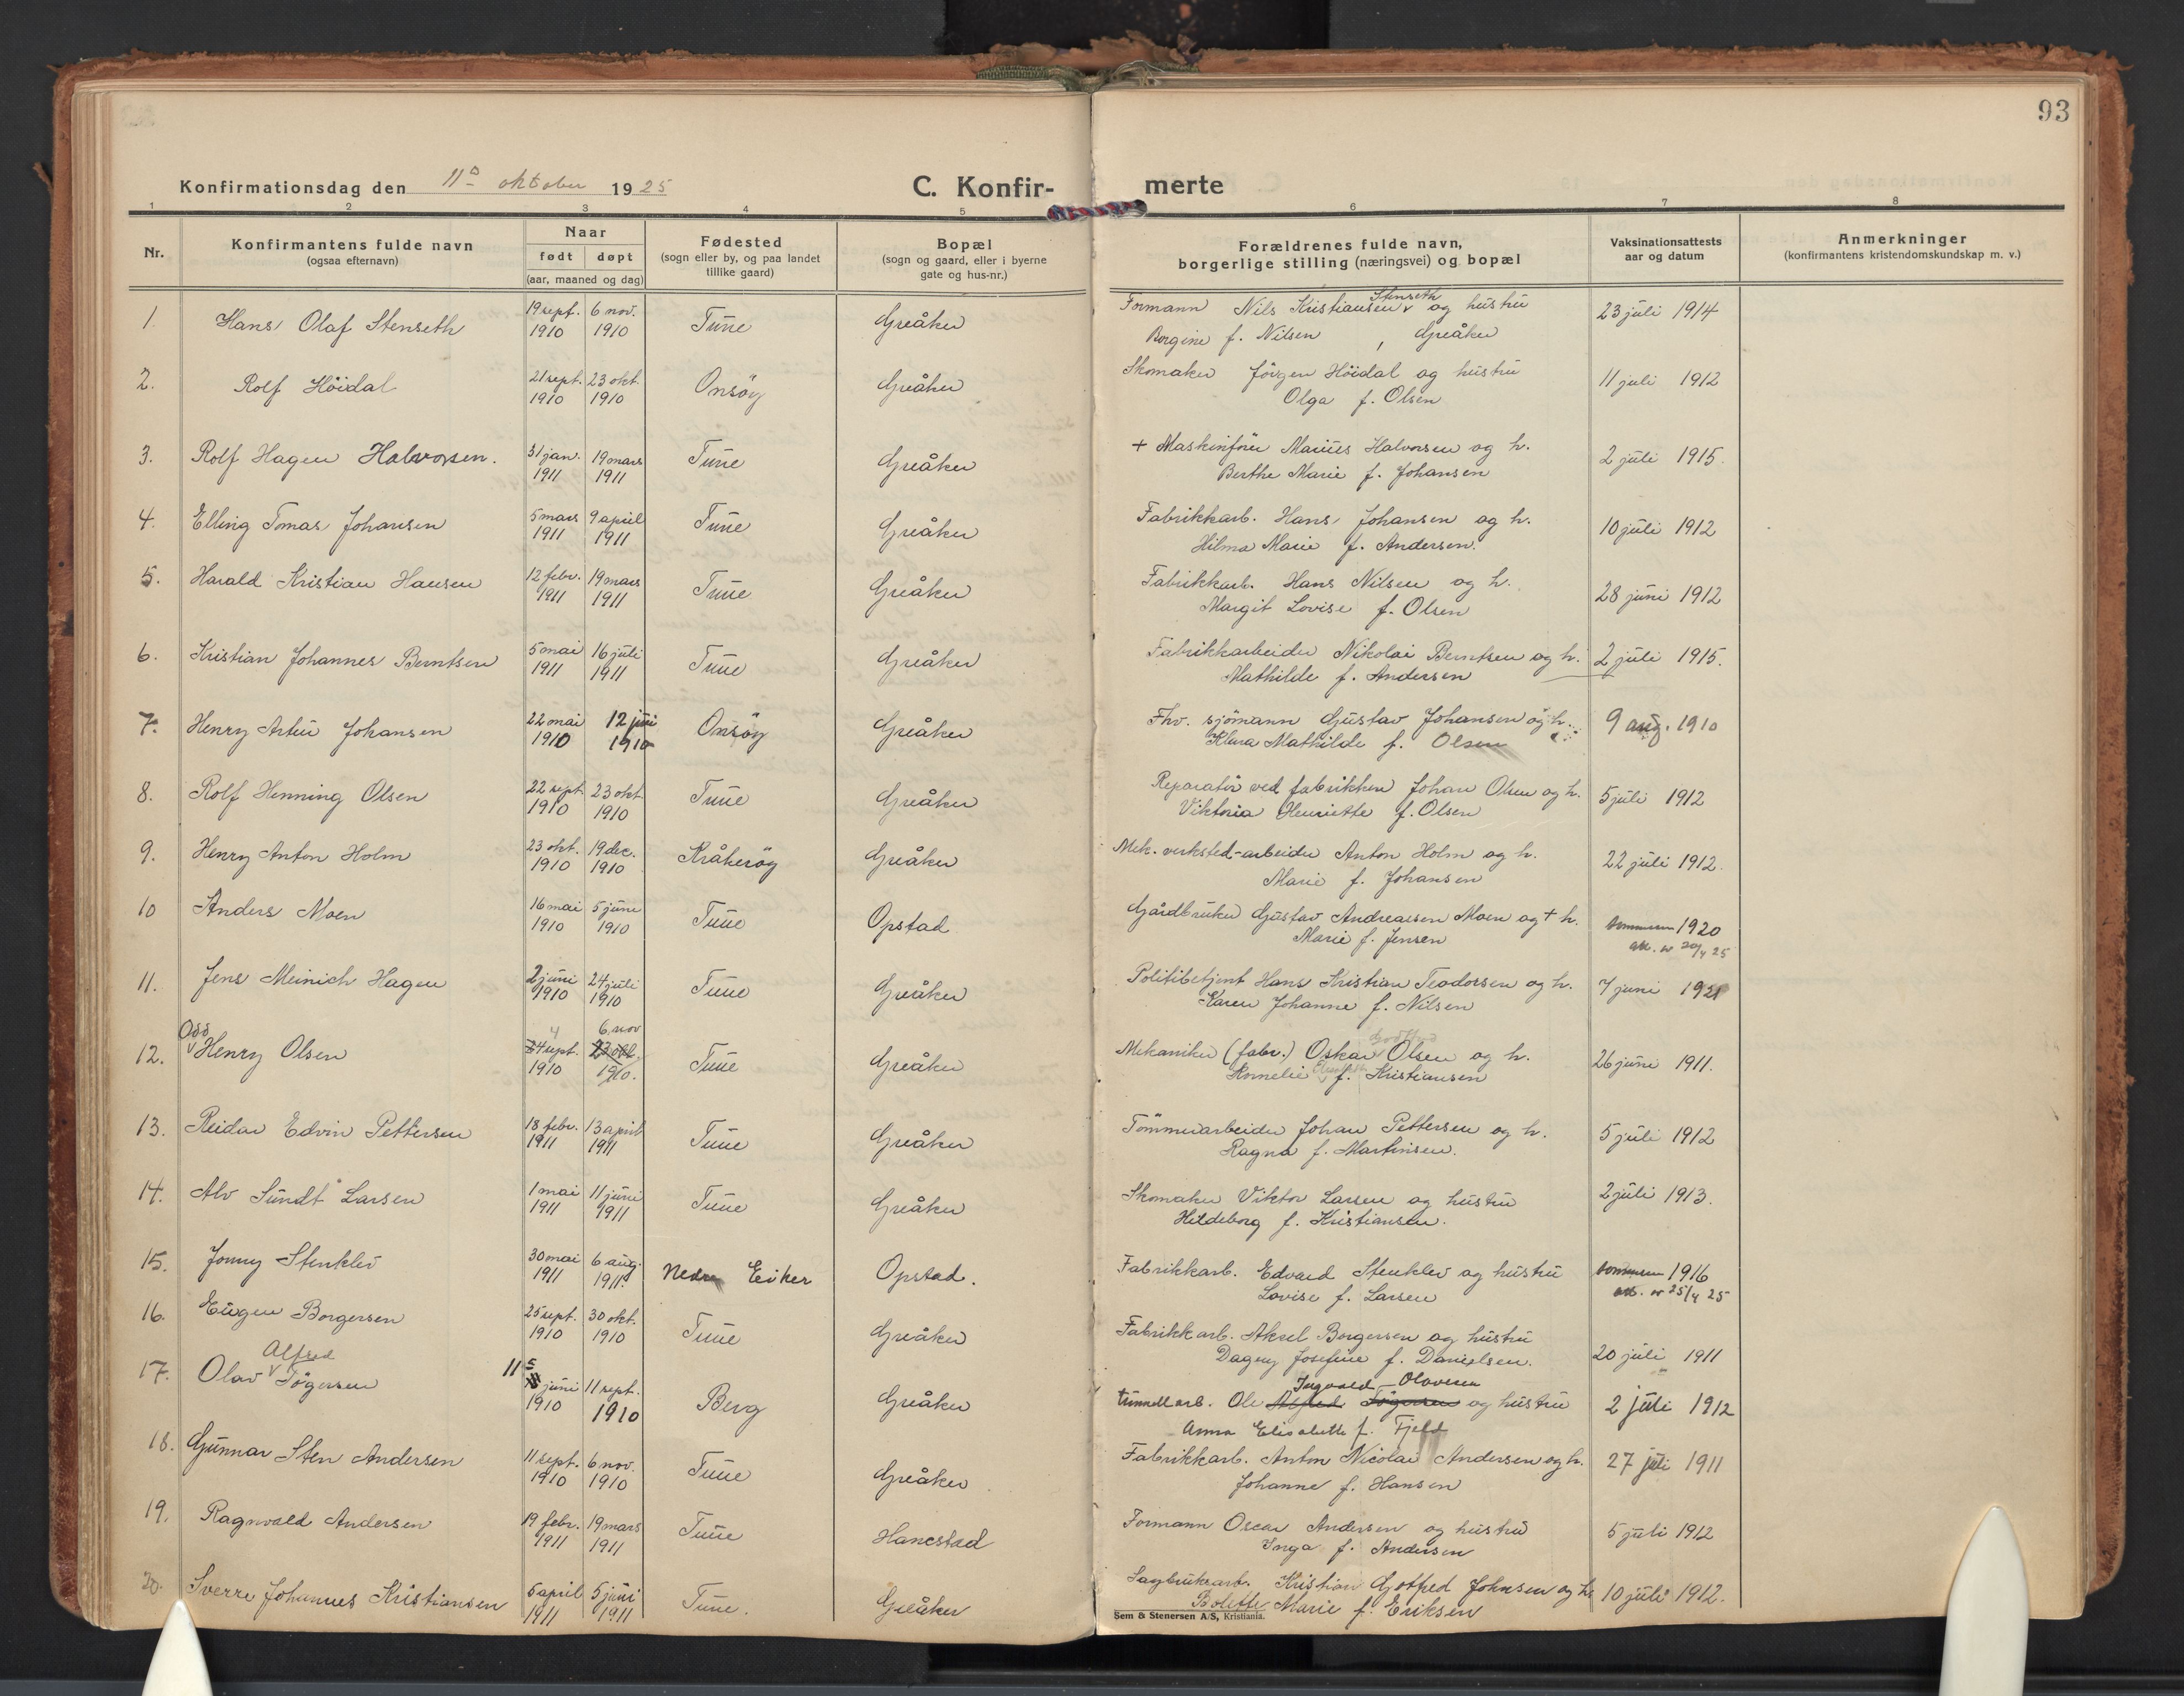 93
Konfirmationsdag den 11 oktober 1925
C. Konfir-
merte
1 2 3 4 5 6 7 8
Nr.
Konfirmantens fulde navn
(ogsaa efternavn)
Naar
født døpt
(aar, maaned og dag)
Fødested
(sogn eller by, og paa landet
tillike gaard)
Bopæl
(sogn og gaard, eller i byerne
gate og hus-nr.)
Forældrenes fulde navn,
borgerlige stilling (næringsvei) og bopæl
Vaksinationsattests
aar og datum
Anmerkninger
(konfirmantens kristendomskundskap m. v.)
1. Hans Olaf Stenseth 19 sept. 1910 6 nov. 1910 Tune Greåker Formann Nils Kristiansen Stenseth og hustru 23 juli 1914
Borgine f. Nilsen, Greåker
2. Rolf Höidal 21 sept. 1910 23 okt. 1910 Onsöy Greåker Skomaker Jörgen Höidal og hustru 11 juli 1912
Olga f. Olsen
3. Rolf Hagen Halvorsen. 31 jan. 1911 19 mars 1911 Tune Greåker + Maskinförer Marius Halvorsen og h. 2 juli 1915.
Berthe Marie f. Johansen
4. Elling Tomas Johansen 5 mars 1911 9 april 1911 Tune Greåker Fabrikkarb. Hans Johansen og h. 10 juli 1912
Hilma Marie f. Andersen.
5. Harald Kristian Hansen 12 febr. 1911 19 mars 1911 Tune Greåker Fabrikkarb. Hans Nilsen og h. 28 juni 1912
Margit Lovise f. Olsen
6. Kristian Johannes Berntsen 5 mai 1911 16 juli 1911 Tune Greåker Fabrikkarbeider Nikolai Berntsen og h. 2 juli 1915.
Mathilde f. Andersen
7. Henry Artur Johansen 22 mai 1910 12 juni 1910 Onsöy Greåker Fhv. sjömann Gustav Johansen og h. 9 aug. 1910
Klara Mathilde f. Olsen
8. Rolf Henning Olsen 22 sept. 1910 23 okt. 1910 Tune Greåker Reparatör ved fabrikken Johan Olsen og h. 5 juli 1912
Viktoria Henriette f. Olsen
9. Henry Anton Holm 23 okt. 1910 19 dec. 1910 Kråkeröy Greåker Mek. verksted-arbeider Anton Holm og h. 22 juli 1912.
Marie f. Johansen
10 Anders Moen 16 mai 1910 5 juni 1910 Tune Opstad Gårdbruker Gustav Andreassen Moen og + h. sommeren 1920
Marie f. Jensen att. av 20/4 25
11. Jens Meinich Hagen 2 juni 1910 24 juli 1910 Tune Greåker Politibetjent Hans Kristian Teodorsen og h. 7 juni 1921
Karen Johanne f. Nilsen
12. Odd Henry Olsen 4 sept. 1910 6. nov 23 okt. 1910. Tune Greåker Mekaniker (fabr.) Oskar Olsen og h. 26 juni 1911.
Kornelie f. Kristiansen
13. Reidar Edvin Pettersen 18 febr. 1911 13 april 1911 Tune Greåker Tömmerarbeider Johan Pettersen og h. 5 juli 1912
Ragna f. Martinsen.
14. Alv Sundt Larsen 1 mai 1911 11 juni 1911 Tune Greåker Skomaker Viktor Larsen og hustru 2 juli 1913.
Hildeborg f. Kristiansen.
15. Jonny Stenklev 30 mai 1911 6 aug. 1911 Nedre Eiker Opstad. Fabrikkarb. Edvard Stenklev og hustru sommeren 1916
Lovise f. Larsen att. av 25/4 25
16. Eugen Borgersen 25 sept. 1910 30 okt. 1910 Tune Greåker Fabrikkarb. Aksel Borgersen og hustru 20 juli 1911
Dagny Josefine f. Danielsen.
17. Olav Alfred Törgersen 11 juni 1910 11 sept. 1910 Berg Greåker tunnellarb. Ole Alfred Törgersen Ingvald Olavesen og hustru 2 juli 1912
Anna Elisabeth f. Fjeld
18. Gunnar Sten Andersen 11 sept. 1910 6 nov. 1910 Tune Greåker Fabrikkarb. Anton Nicolai Andersen og h. 27 juli 1911
Johanne f. Hansen
19. Ragnvald Andersen 19 febr. 1911 19 mars 1911 Tune Hanestad Formann Oscar Andersen og hustru 5 juli 1912
Inga f. Andersen
20. Sverre Johannes Kristiansen 5 april 1911 5 juni 1911 Tune. Greåker Sagbruksarb. Kristian Gotfred Johnsen og h. 10 juli 1912.
Bolette Marie f. Eriksen
Sem & Stenersen A/S, Kristiania.